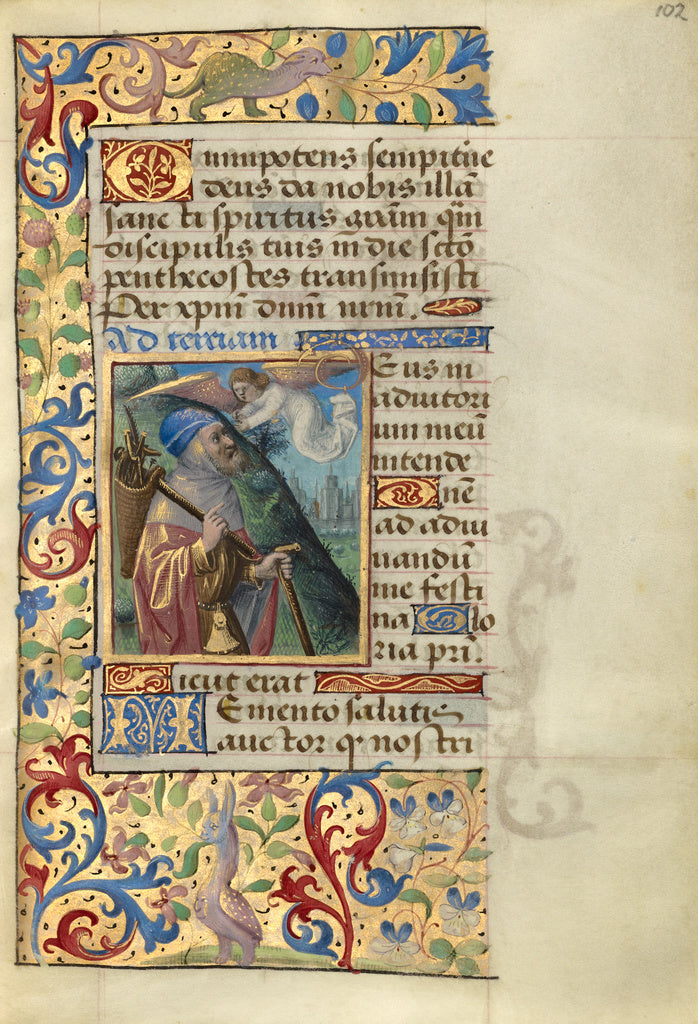 102
Omnipotens sempit̄ne
deus da nobis illā
sancti spiritus grām̄ quā
discipulis tuis in die sctō
penthecostes transmisisti
Per xpm̄ dn̄m nr̄m.
Ad terciam
Deus in
adiutori
um meū
intende
Dn̄e
ad adiu
uandū
me festi
na Glo
ria pri.
Sicut erat
Memento salutis
auctor q nostri